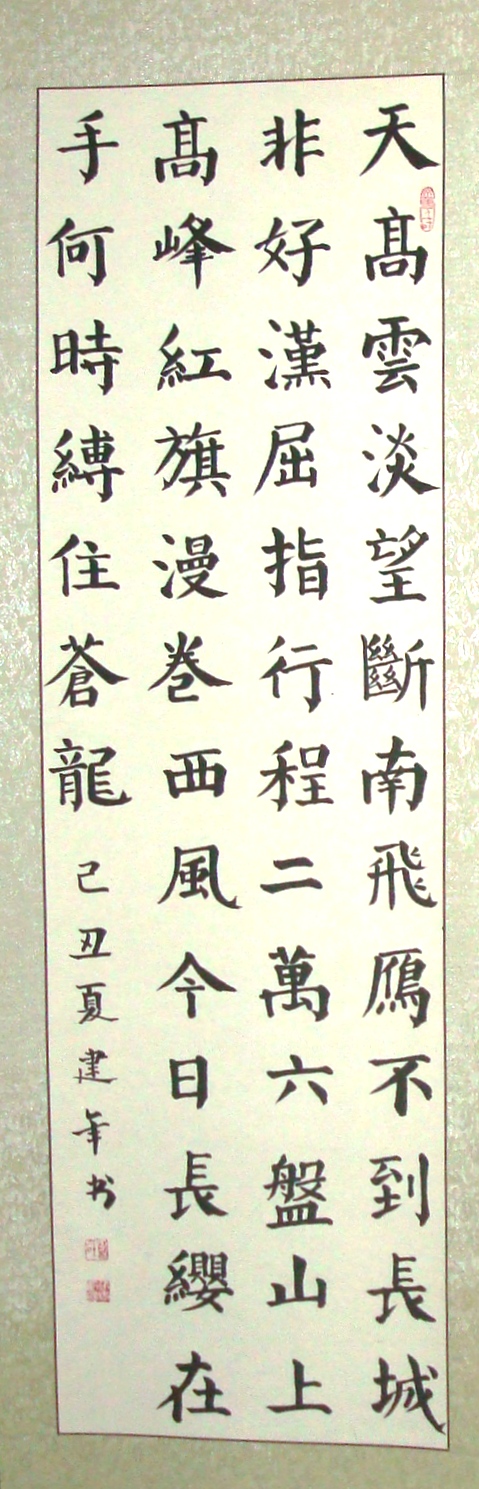 天髙雲淡望斷南飛鴈不到長城
非好漢屈指行程二萬六盤山上
髙峰紅旗漫巻西風今日長纓在
手何時縛住蒼龍
己丑夏建年书